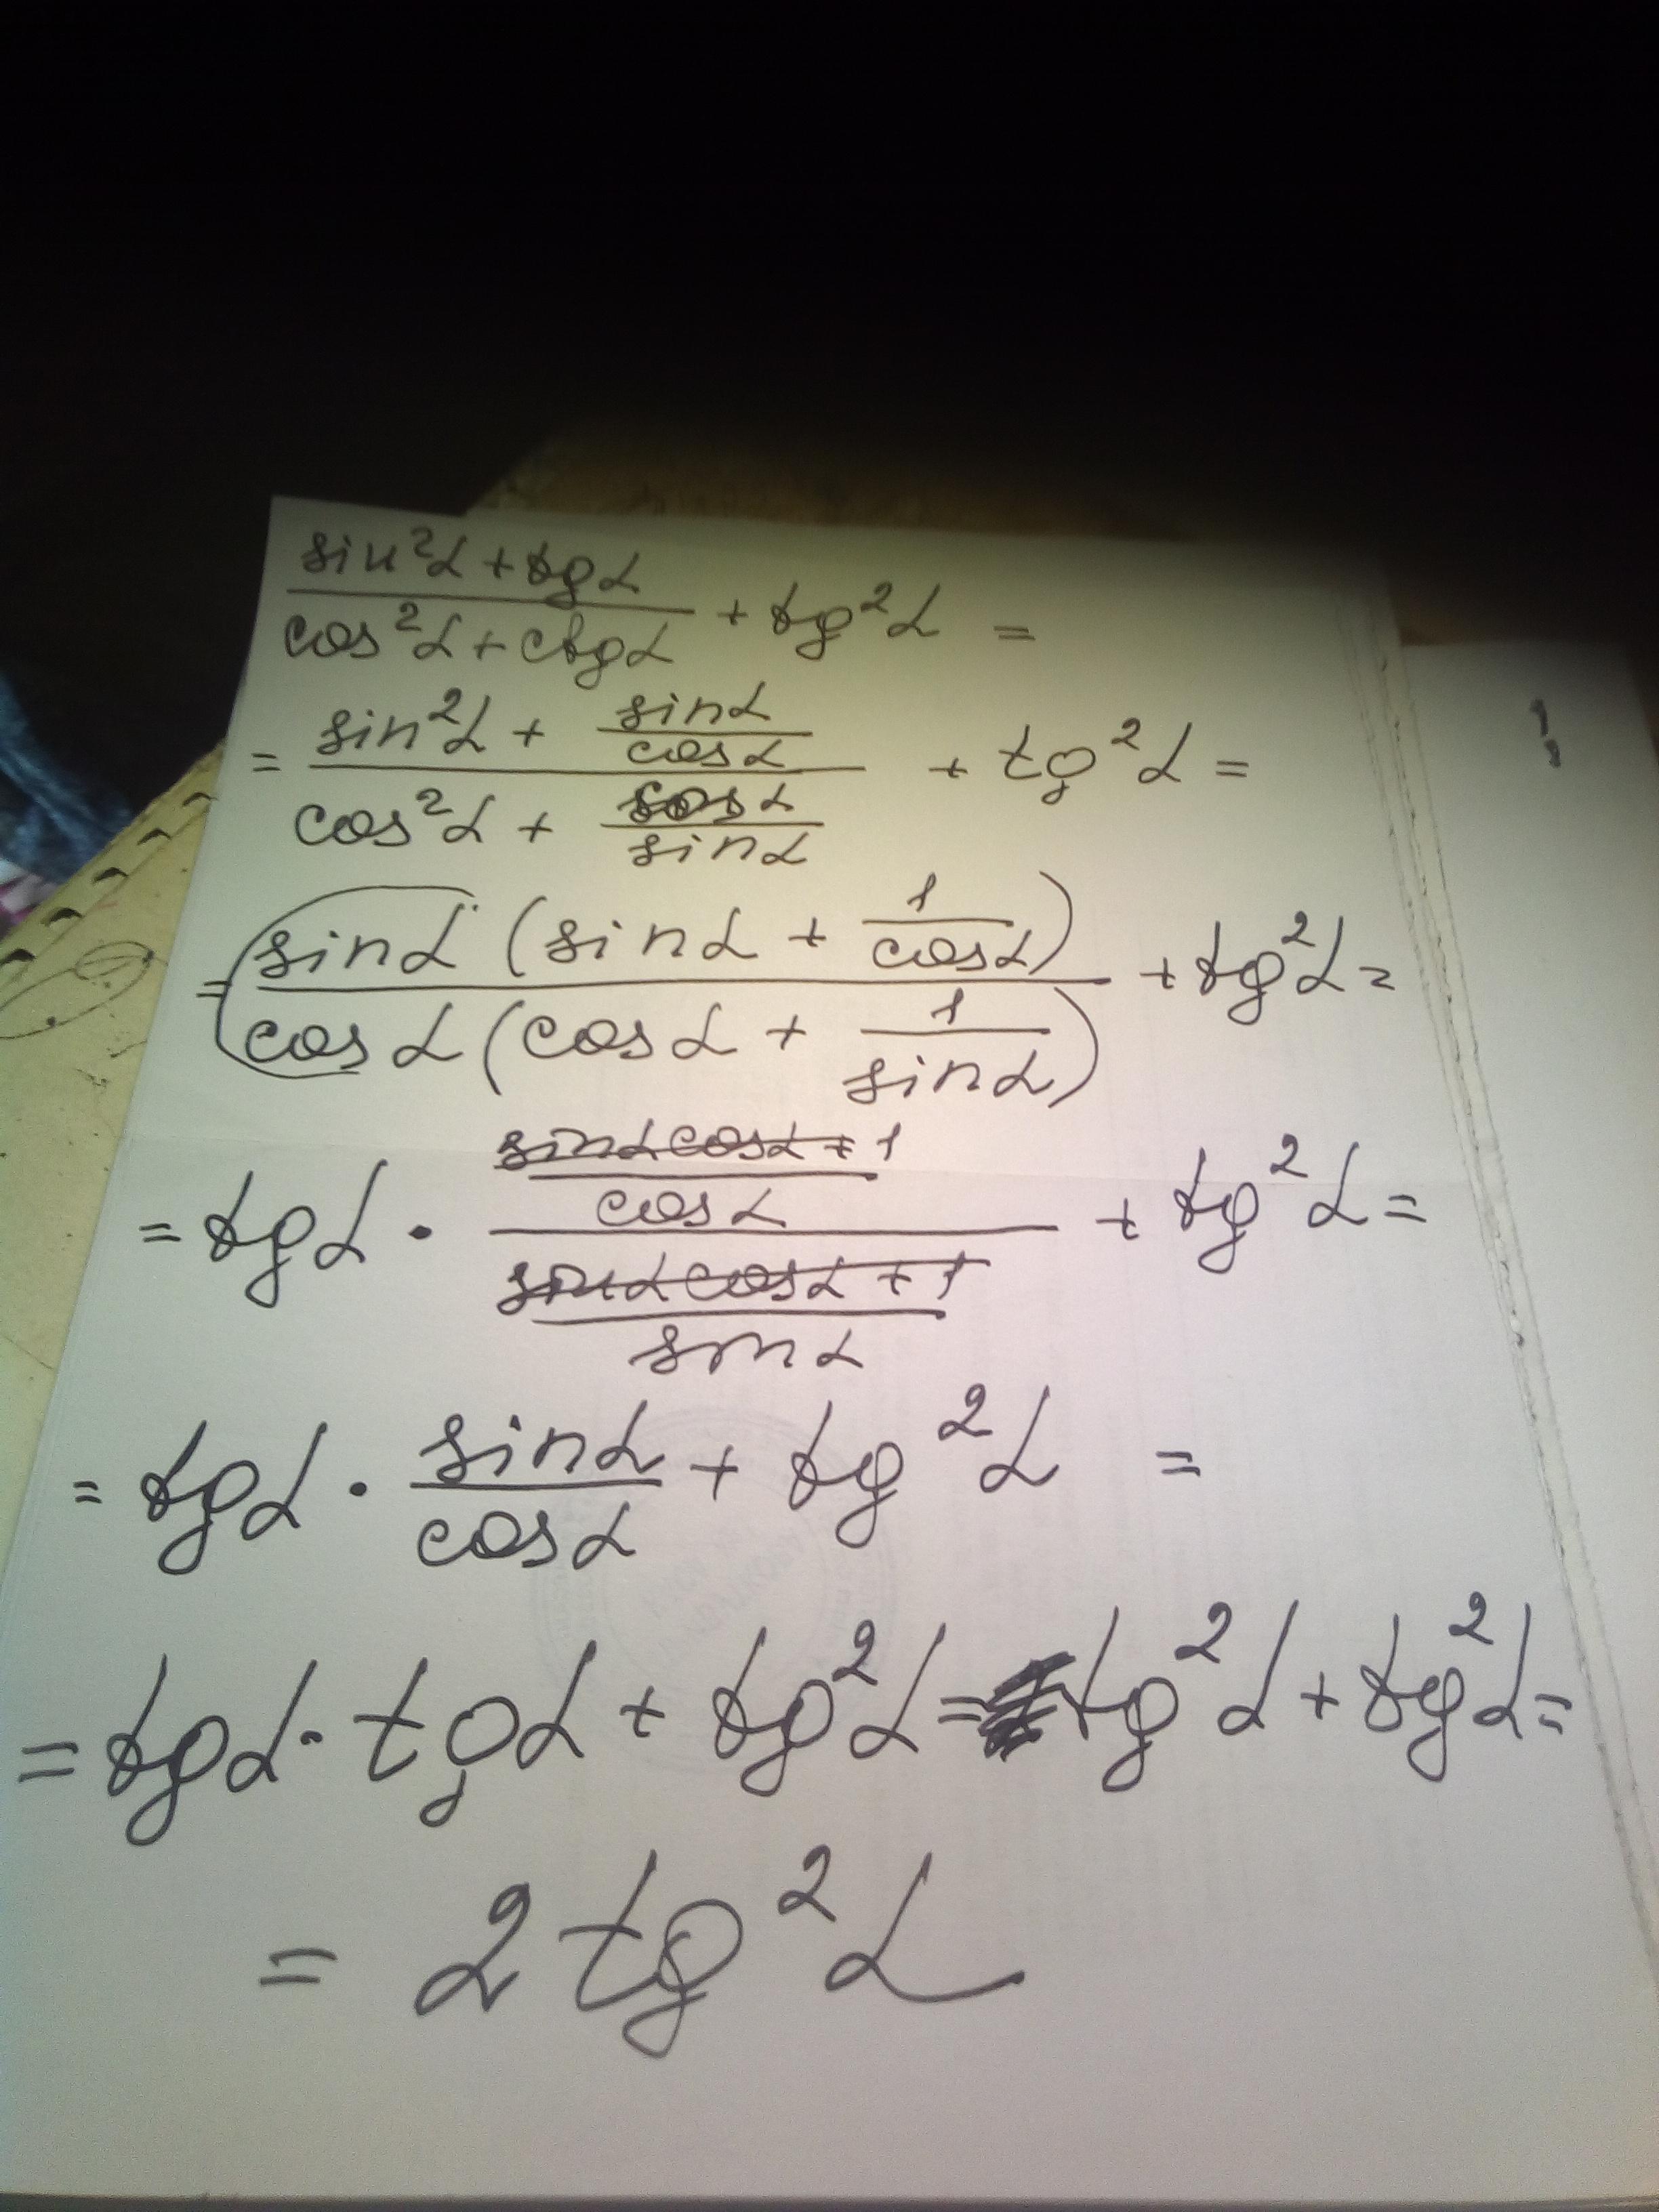 (sin²α + tgα)/(cos²α + ctgα) + tg²α =
= (sin²α + sinα/cosα)/(cos²α + cosα/sinα) + tg²α =
= sinα (sinα + 1/cosα)/cosα (cosα + 1/sinα) + tg²α =
= tgα · ((sinα cosα + 1)/cosα)/((sinα cosα + 1)/sinα) + tg²α =
= tgα · sinα/cosα + tg²α =
= tgα · tgα + tg²α = tg²α + tg²α =
= 2 tg²α